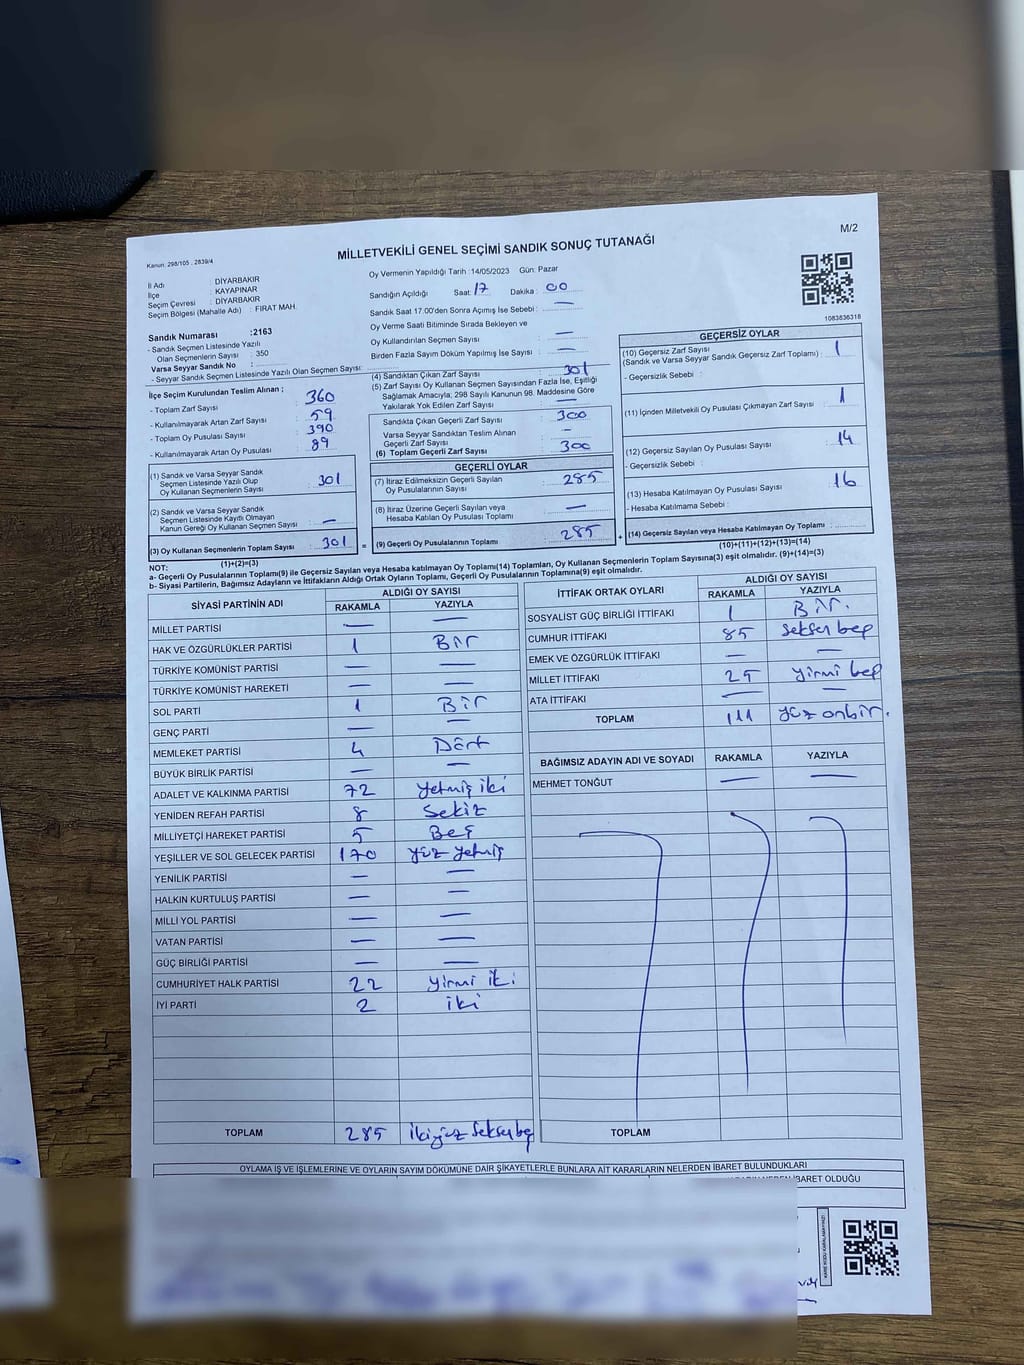 M/2
MİLLETVEKİLİ GENEL SEÇİMİ SANDIK SONUÇ TUTANAĞI
Kanun. 298/105 . 2839/4
Oy Vermenin Yapıldığı Tarih :14/05/2023 Gün: Pazar
İl Adı : DİYARBAKIR
İlçe : KAYAPINAR
Seçim Çevresi : DİYARBAKIR
Seçim Bölgesi (Mahalle Adı) : FIRAT MAH.
Sandığın Açıldığı Saat: 17 Dakika: 00
Sandık Saat 17.00'den Sonra Açımış İse Sebebi : —
Oy Verme Saati Bitiminde Sırada Bekleyen ve
Oy Kullandırılan Seçmen Sayısı : —
Birden Fazla Sayım Döküm Yapılmış İse Sayısı : —
1083836318
Sandık Numarası :2163
- Sandık Seçmen Listesinde Yazılı
Olan Seçmenlerin Sayısı : 350
Varsa Seyyar Sandık No :
- Seyyar Sandık Seçmen Listesinde Yazılı Olan Seçmen Sayısı:
İlçe Seçim Kurulundan Teslim Alınan ;
- Toplam Zarf Sayısı : 360
- Kullanılmayarak Artan Zarf Sayısı : 59
- Toplam Oy Pusulası Sayısı : 390
- Kullanılmayarak Artan Oy Pusulası : 89
(1) Sandık ve Varsa Seyyar Sandık
Seçmen Listesinde Yazılı Olup
Oy Kullanan Seçmenlerin Sayısı : 301
(2) Sandık ve Varsa Seyyar Sandık
Seçmen Listesinde Kayıtlı Olmayan
Kanun Gereği Oy Kullanan Seçmen Sayısı : —
(3) Oy Kullanan Seçmenlerin Toplam Sayısı : 301 =
(1)+(2)=(3)
(4) Sandıktan Çıkan Zarf Sayısı : 301
(5) Zarf Sayısı Oy Kullanan Seçmen Sayısından Fazla İse, Eşitliği
Sağlamak Amacıyla; 298 Sayılı Kanunun 98. Maddesine Göre
Yakılarak Yok Edilen Zarf Sayısı : —
Sandıkta Çıkan Geçerli Zarf Sayısı : 300
Varsa Seyyar Sandıktan Teslim Alınan
Geçerli Zarf Sayısı : —
(6) Toplam Geçerli Zarf Sayısı : 300
GEÇERLİ OYLAR
(7) İtiraz Edilmeksizin Geçerli Sayılan
Oy Pusulalarının Sayısı : 285
(8) İtiraz Üzerine Geçerli Sayılan veya
Hesaba Katılan Oy Pusulası Toplamı : —
(9) Geçerli Oy Pusulalarının Toplamı : 285 +
GEÇERSİZ OYLAR
(10) Geçersiz Zarf Sayısı
(Sandık ve Varsa Seyyar Sandık Geçersiz Zarf Toplamı) : 1
- Geçersizlik Sebebi :
(11) İçinden Milletvekili Oy Pusulası Çıkmayan Zarf Sayısı : 1
(12) Geçersiz Sayılan Oy Pusulası Sayısı : 14
- Geçersizlik Sebebi :
(13) Hesaba Katılmayan Oy Pusulası Sayısı : 16
- Hesaba Katılmama Sebebi :
(14) Geçersiz Sayılan veya Hesaba Katılmayan Oy Toplamı :
(10)+(11)+(12)+(13)=(14)
NOT:
a- Geçerli Oy Pusulalarının Toplamı(9) ile Geçersiz Sayılan veya Hesaba katılmayan Oy Toplamı(14) Toplamları, Oy Kullanan Seçmenlerin Toplam Sayısına(3) eşit olmalıdır. (9)+(14)=(3)
b- Siyasi Partilerin, Bağımsız Adayların ve İttifakların Aldığı Ortak Oyların Toplamı, Geçerli Oy Pusulalarının Toplamına(9) eşit olmalıdır.
SİYASİ PARTİNİN ADI ALDIĞI OY SAYISI
RAKAMLA YAZIYLA
MİLLET PARTİSİ — —
HAK VE ÖZGÜRLÜKLER PARTİSİ 1 Bir
TÜRKİYE KOMÜNİST PARTİSİ — —
TÜRKİYE KOMÜNİST HAREKETİ — —
SOL PARTİ 1 Bir
GENÇ PARTİ — —
MEMLEKET PARTİSİ 4 Dört
BÜYÜK BİRLİK PARTİSİ — —
ADALET VE KALKINMA PARTİSİ 72 Yetmiş iki
YENİDEN REFAH PARTİSİ 8 Sekiz
MİLLİYETÇİ HAREKET PARTİSİ 5 Beş
YEŞİLLER VE SOL GELECEK PARTİSİ 170 yüz yetmiş
YENİLİK PARTİSİ — —
HALKIN KURTULUŞ PARTİSİ — —
MİLLİ YOL PARTİSİ — —
VATAN PARTİSİ — —
GÜÇ BİRLİĞİ PARTİSİ — —
CUMHURİYET HALK PARTİSİ 22 yirmi iki
İYİ PARTİ 2 iki
TOPLAM 285 ikiyüz seksenbeş
İTTİFAK ORTAK OYLARI ALDIĞI OY SAYISI
RAKAMLA YAZIYLA
SOSYALİST GÜÇ BİRLİĞİ İTTİFAKI 1 Bir.
CUMHUR İTTİFAKI 85 seksen beş
EMEK VE ÖZGÜRLÜK İTTİFAKI — —
MİLLET İTTİFAKI 25 yirmi beş
ATA İTTİFAKI — —
TOPLAM 111 yüz onbir.
BAĞIMSIZ ADAYIN ADI VE SOYADI RAKAMLA YAZIYLA
MEHMET TONĞUT — —
TOPLAM
OYLAMA İŞ VE İŞLEMLERİNE VE OYLARIN SAYIM DÖKÜMÜNE DAİR ŞİKAYETLERLE BUNLARA AİT KARARLARIN NELERDEN İBARET BULUNDUKLARI
İBARET OLDUĞU
KARE KODU KARALAMAYINIZ!